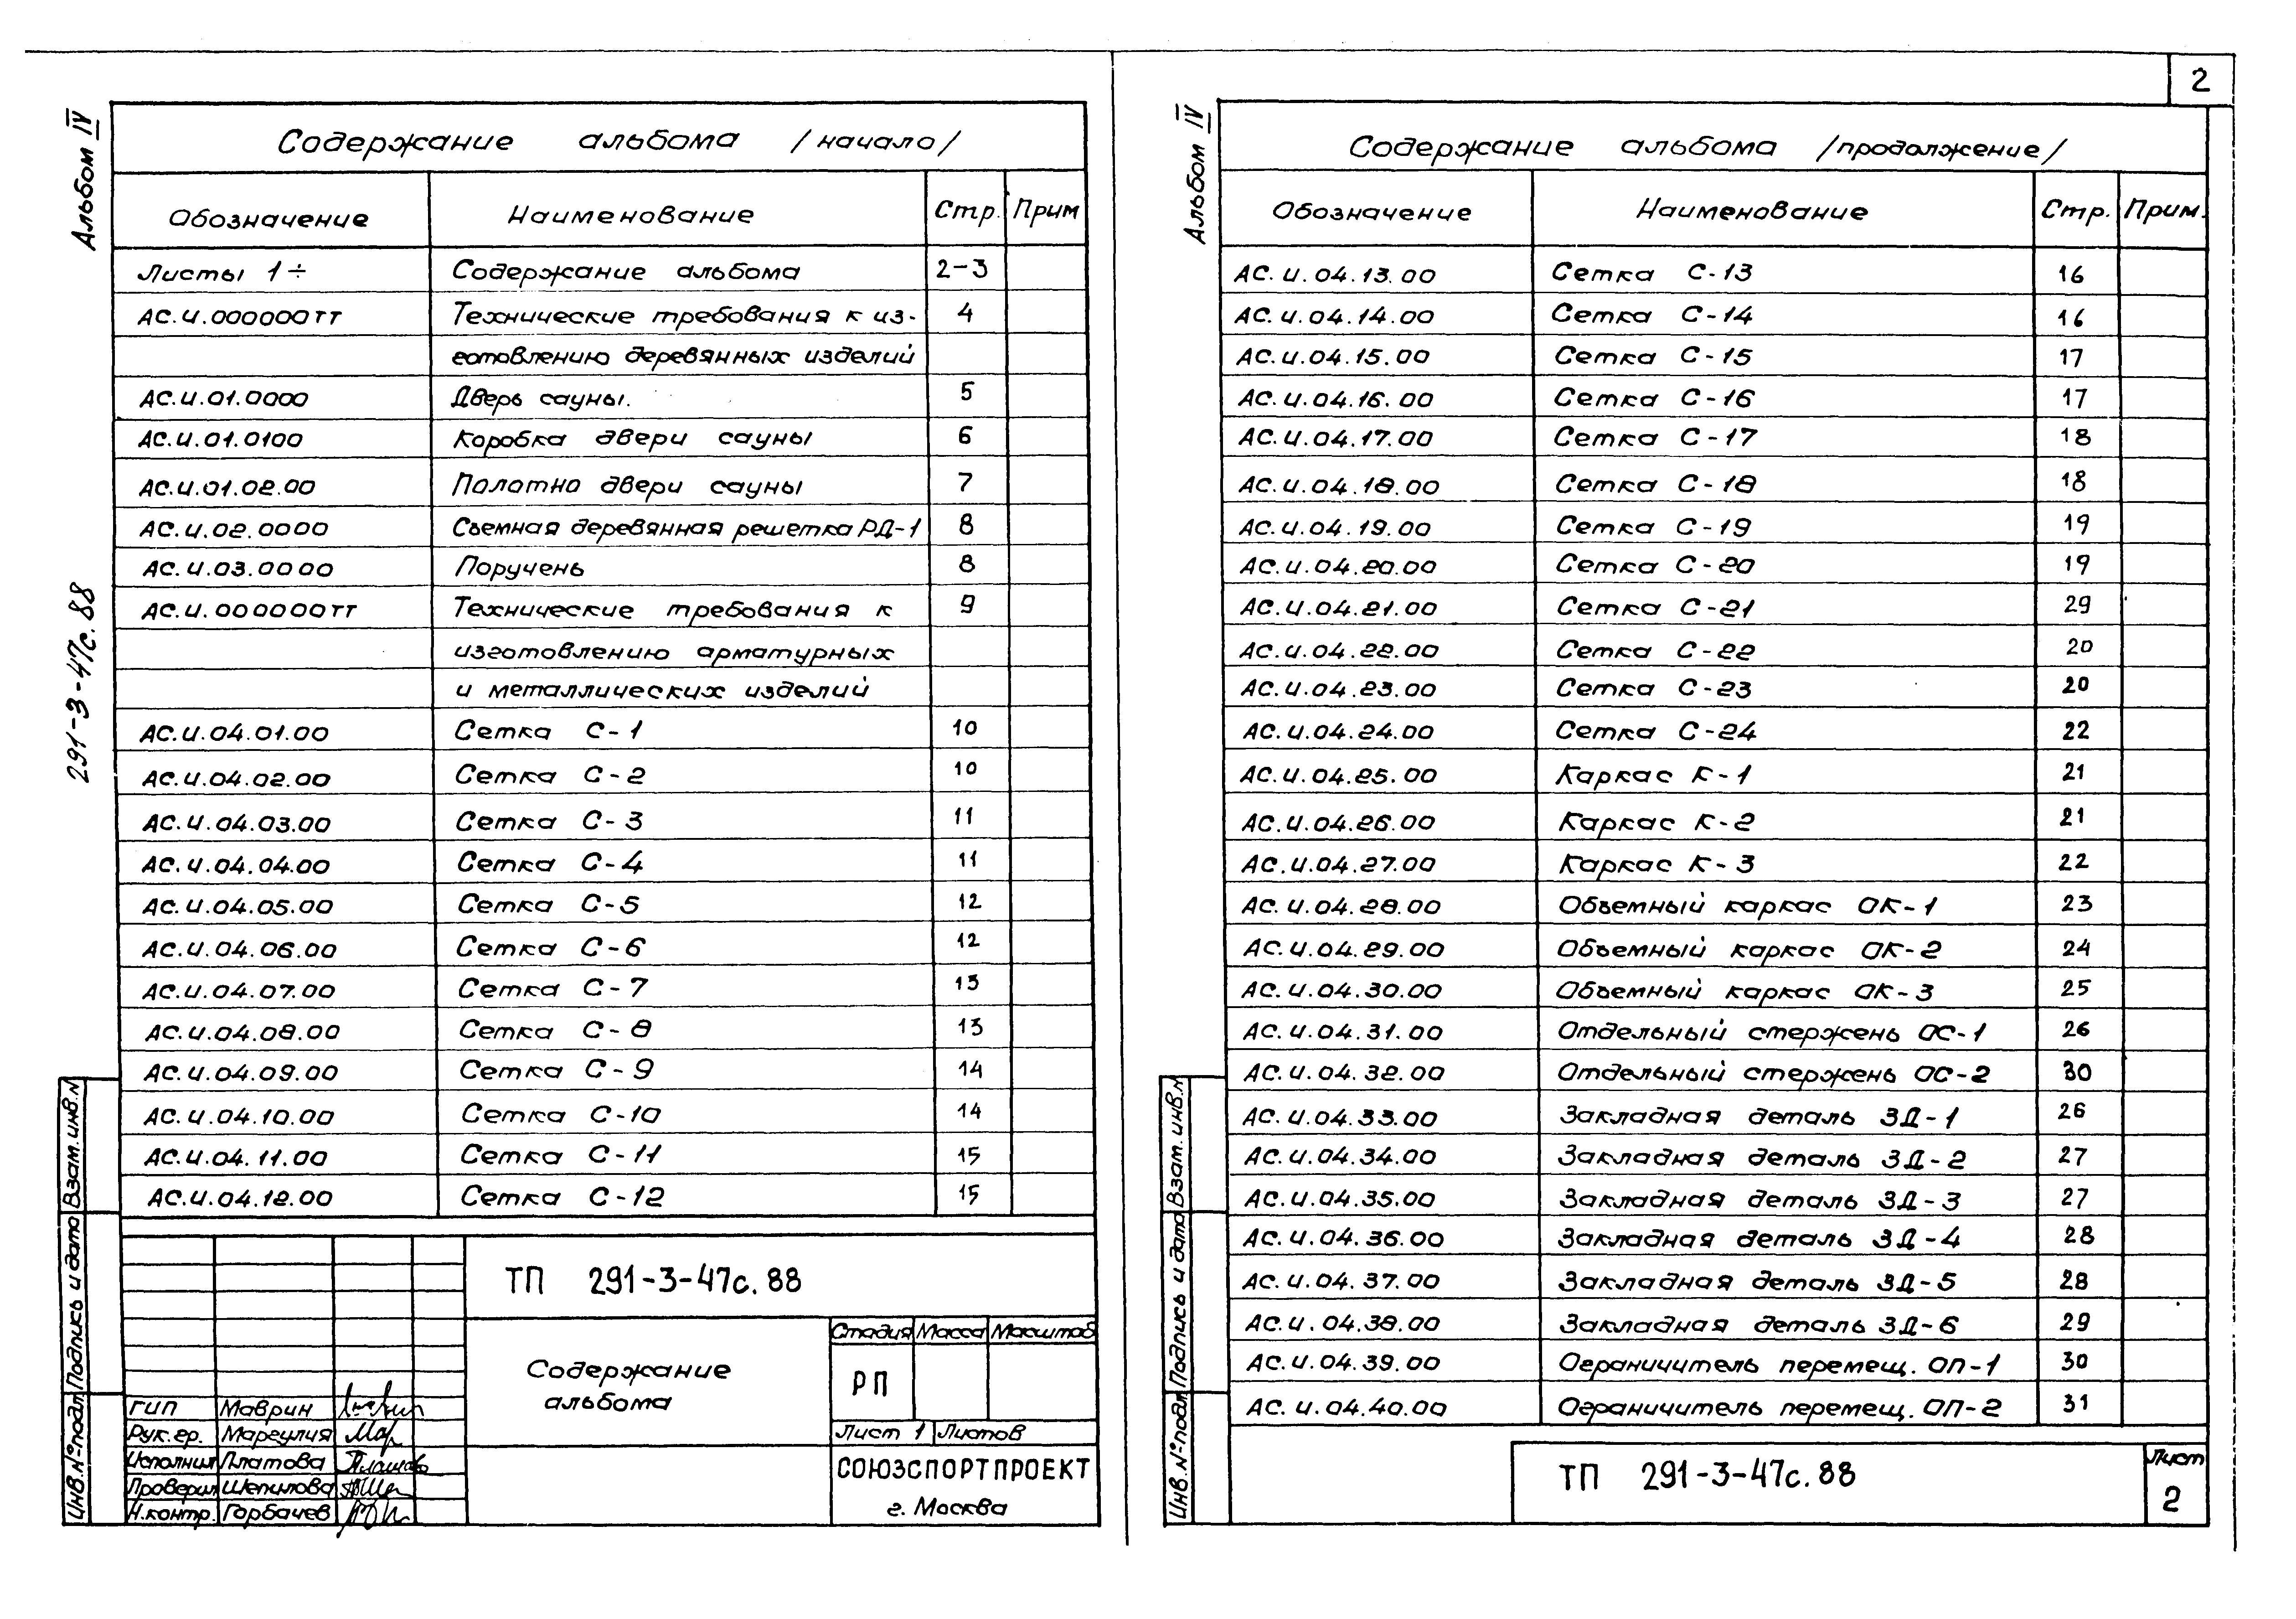 2
Альбом IV
291-3-47с.88
Содержание альбома /начало/
Обозначение Наименование Стр. Прим
Листы 1÷ Содержание альбома 2-3
АС.И.000000ТТ Технические требования к из- 4
готовлению деревянных изделий
АС.И.01.0000 Дверь сауны. 5
АС.И.01.0100 Коробка двери сауны 6
АС.И.01.02.00 Полотно двери сауны 7
АС.И.02.0000 Съемная деревянная решетка РД-1 8
АС.И.03.0000 Поручень 8
АС.И.000000ТТ Технические требования к 9
изготовлению арматурных
и металлических изделий
АС.И.04.01.00 Сетка С-1 10
АС.И.04.02.00 Сетка С-2 10
АС.И.04.03.00 Сетка С-3 11
АС.И.04.04.00 Сетка С-4 11
АС.И.04.05.00 Сетка С-5 12
АС.И.04.06.00 Сетка С-6 12
АС.И.04.07.00 Сетка С-7 13
АС.И.04.08.00 Сетка С-8 13
АС.И.04.09.00 Сетка С-9 14
АС.И.04.10.00 Сетка С-10 14
АС.И.04.11.00 Сетка С-11 15
АС.И.04.12.00 Сетка С-12 15
ТП 291-3-47с.88
Содержание
альбома
Стадия Масса Масштаб
РП
Лист 1 Листов
СОЮЗСПОРТПРОЕКТ
г. Москва
ГИП Маврин
Рук.гр. Маргулия
Исполнил Платова
Проверил Шепилова
Н.контр. Горбачев
Взам.инв.N
Подпись и дата
Инв.N°подл.
Альбом IV
Содержание альбома /продолжение/
Обозначение Наименование Стр. Прим.
АС.И.04.13.00 Сетка С-13 16
АС.И.04.14.00 Сетка С-14 16
АС.И.04.15.00 Сетка С-15 17
АС.И.04.16.00 Сетка С-16 17
АС.И.04.17.00 Сетка С-17 18
АС.И.04.18.00 Сетка С-18 18
АС.И.04.19.00 Сетка С-19 19
АС.И.04.20.00 Сетка С-20 19
АС.И.04.21.00 Сетка С-21 29
АС.И.04.22.00 Сетка С-22 20
АС.И.04.23.00 Сетка С-23 20
АС.И.04.24.00 Сетка С-24 22
АС.И.04.25.00 Каркас К-1 21
АС.И.04.26.00 Каркас К-2 21
АС.И.04.27.00 Каркас К-3 22
АС.И.04.28.00 Объемный каркас ОК-1 23
АС.И.04.29.00 Объемный каркас ОК-2 24
АС.И.04.30.00 Объемный каркас ОК-3 25
АС.И.04.31.00 Отдельный стержень ОС-1 26
АС.И.04.32.00 Отдельный стержень ОС-2 30
АС.И.04.33.00 Закладная деталь ЗД-1 26
АС.И.04.34.00 Закладная деталь ЗД-2 27
АС.И.04.35.00 Закладная деталь ЗД-3 27
АС.И.04.36.00 Закладная деталь ЗД-4 28
АС.И.04.37.00 Закладная деталь ЗД-5 28
АС.И.04.38.00 Закладная деталь ЗД-6 29
АС.И.04.39.00 Ограничитель перемещ. ОП-1 30
АС.И.04.40.00 Ограничитель перемещ. ОП-2 31
ТП 291-3-47с.88
Лист
2
Взам.инв.N
Подпись и дата
Инв.N°подл.